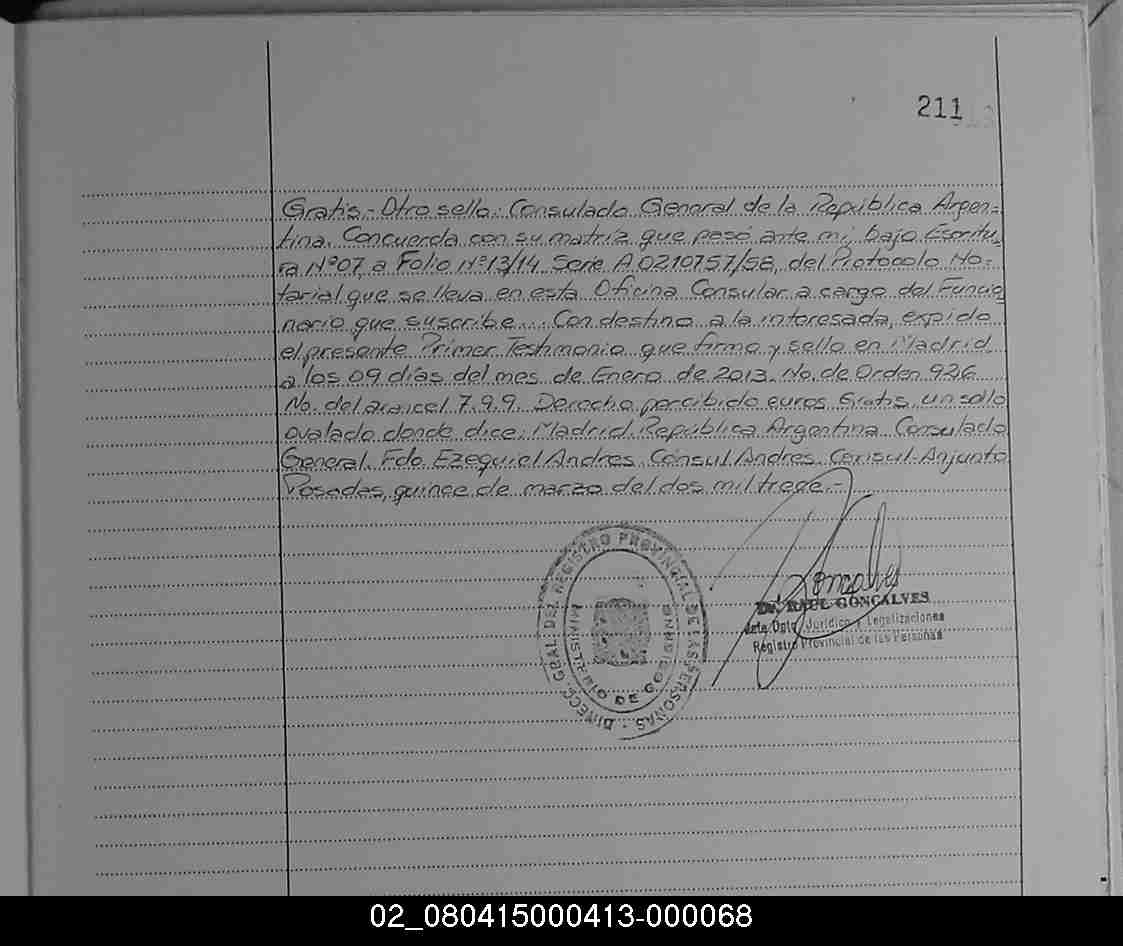 211
Gratis.- Otro sello: Consulado General de la República Argen=
tina. Concuerda con su matriz que pasó ante mi, bajo Escritu,
ra Nº07 a Folio Nº13/14 Serie A 0210757/58, del Protocolo No=
tarial que se lleva en esta Oficina Consular a cargo del Funcio,
nario que suscribe... Con destino a la interesada, expido
el presente Primer Testimonio que firmo y sello en Madrid
a los 09 días del mes de Enero de 2013. No. de Orden 926
No. del arancel 7.9.9. Derecho percibido euros Gratis, un sello
ovalado donde dice: Madrid. República Argentina Consulado
General. Fdo Ezequiel Andres. Cónsul Andres. Consul Anjunto
Posadas, quince de marzo del dos mil trece.-
DIRECC. GRAL. DEL REGISTRO PROVINCIAL DE LAS PERSONAS
MINISTERIO DE GOBIERNO
Goncalves
Dr. RAUL GONCALVES
Jefe Dpto. Jurídico y Legalizaciones
Registro Provincial de las Personas
02_080415000413-000068